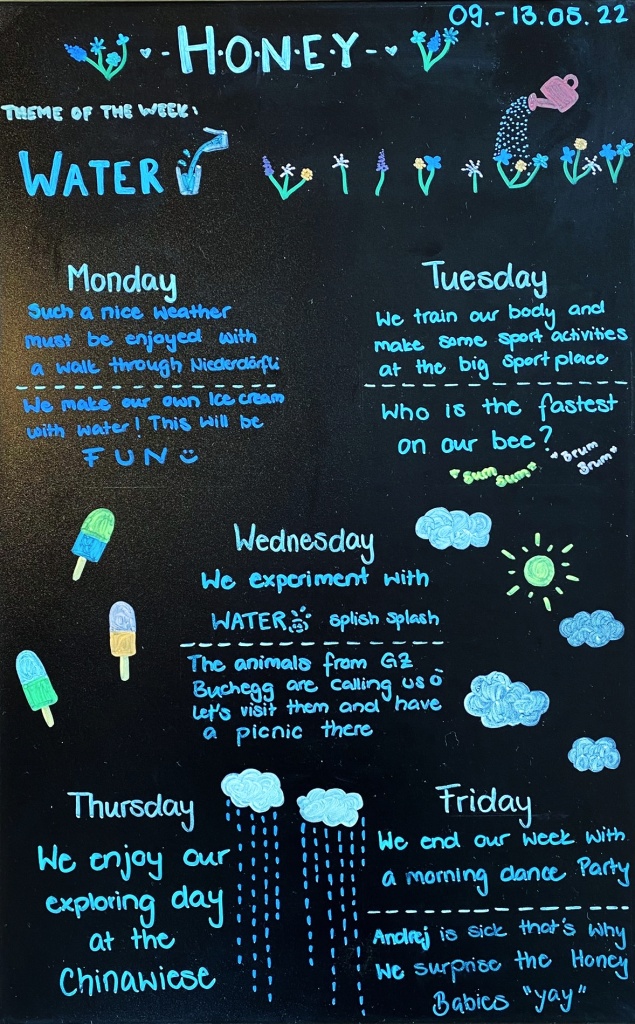 09.-13.05.22
H·O·N·E·Y
THEME OF THE WEEK:
WATER
Monday
Such a nice weather
must be enjoyed with
a walk through Niederdörfli
We make our own Ice cream
with water! This will be
FUN
Tuesday
We train our body and
make some sport activities
at the big Sport place
Who is the fastest
on our bee?
"Sum Sum"
"Brum Brum"
Wednesday
We experiment with
WATER splish splash
The animals from GZ
Buchegg are calling us
Let's visit them and have
a picnic there
Thursday
We enjoy our
exploring day
at the
Chinawiese
Friday
We end our week with
a morning dance Party
Andrej is sick that's why
We surprise the Honey
Babies "yay"